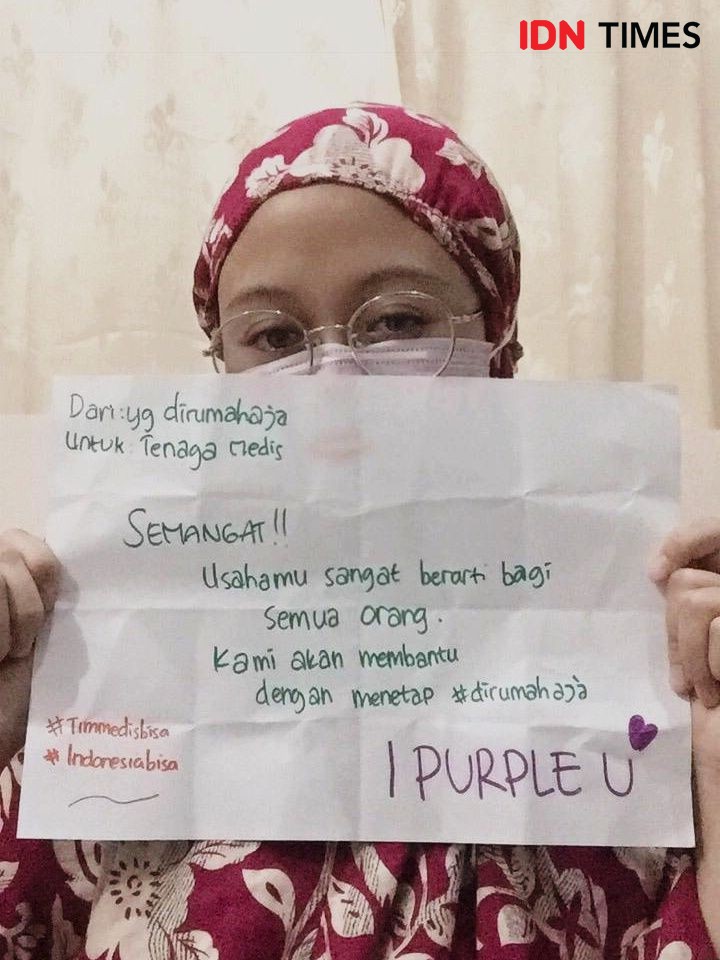 IDN TIMES
Dari : yg dirumahaja
Untuk : Tenaga Medis
SEMANGAT!!
Usahamu sangat berarti bagi
semua orang.
Kami akan membantu
dengan menetap #dirumahaja
#Timmedisbisa
#Indonesiabisa
I PURPLE U